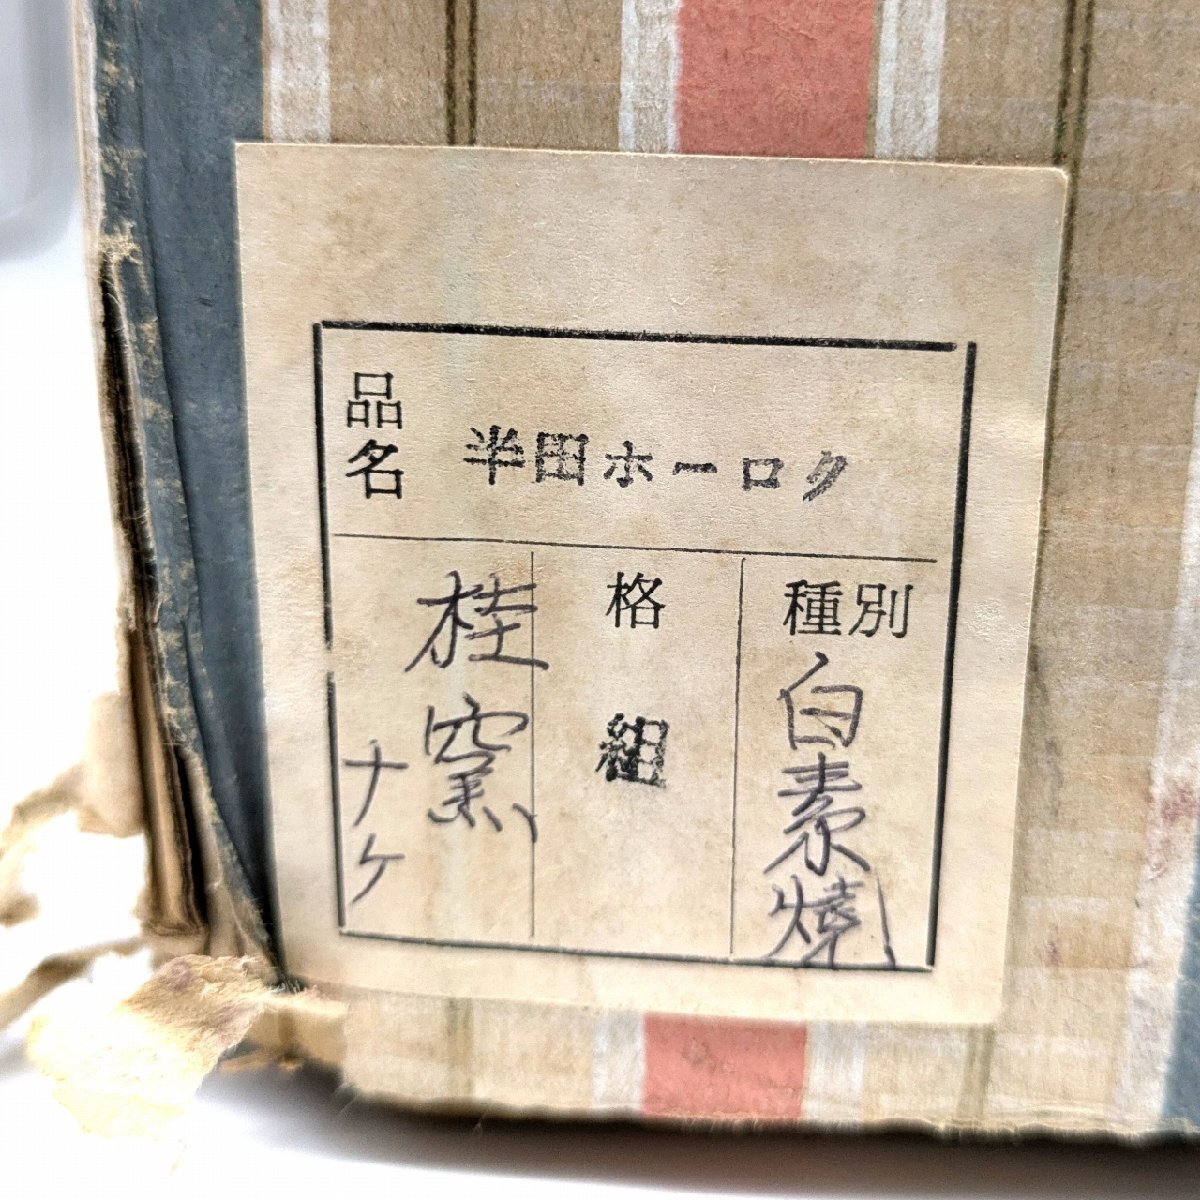 品名
半田ホーロク
種別
白素焼
格
組
桂窯
ナケ